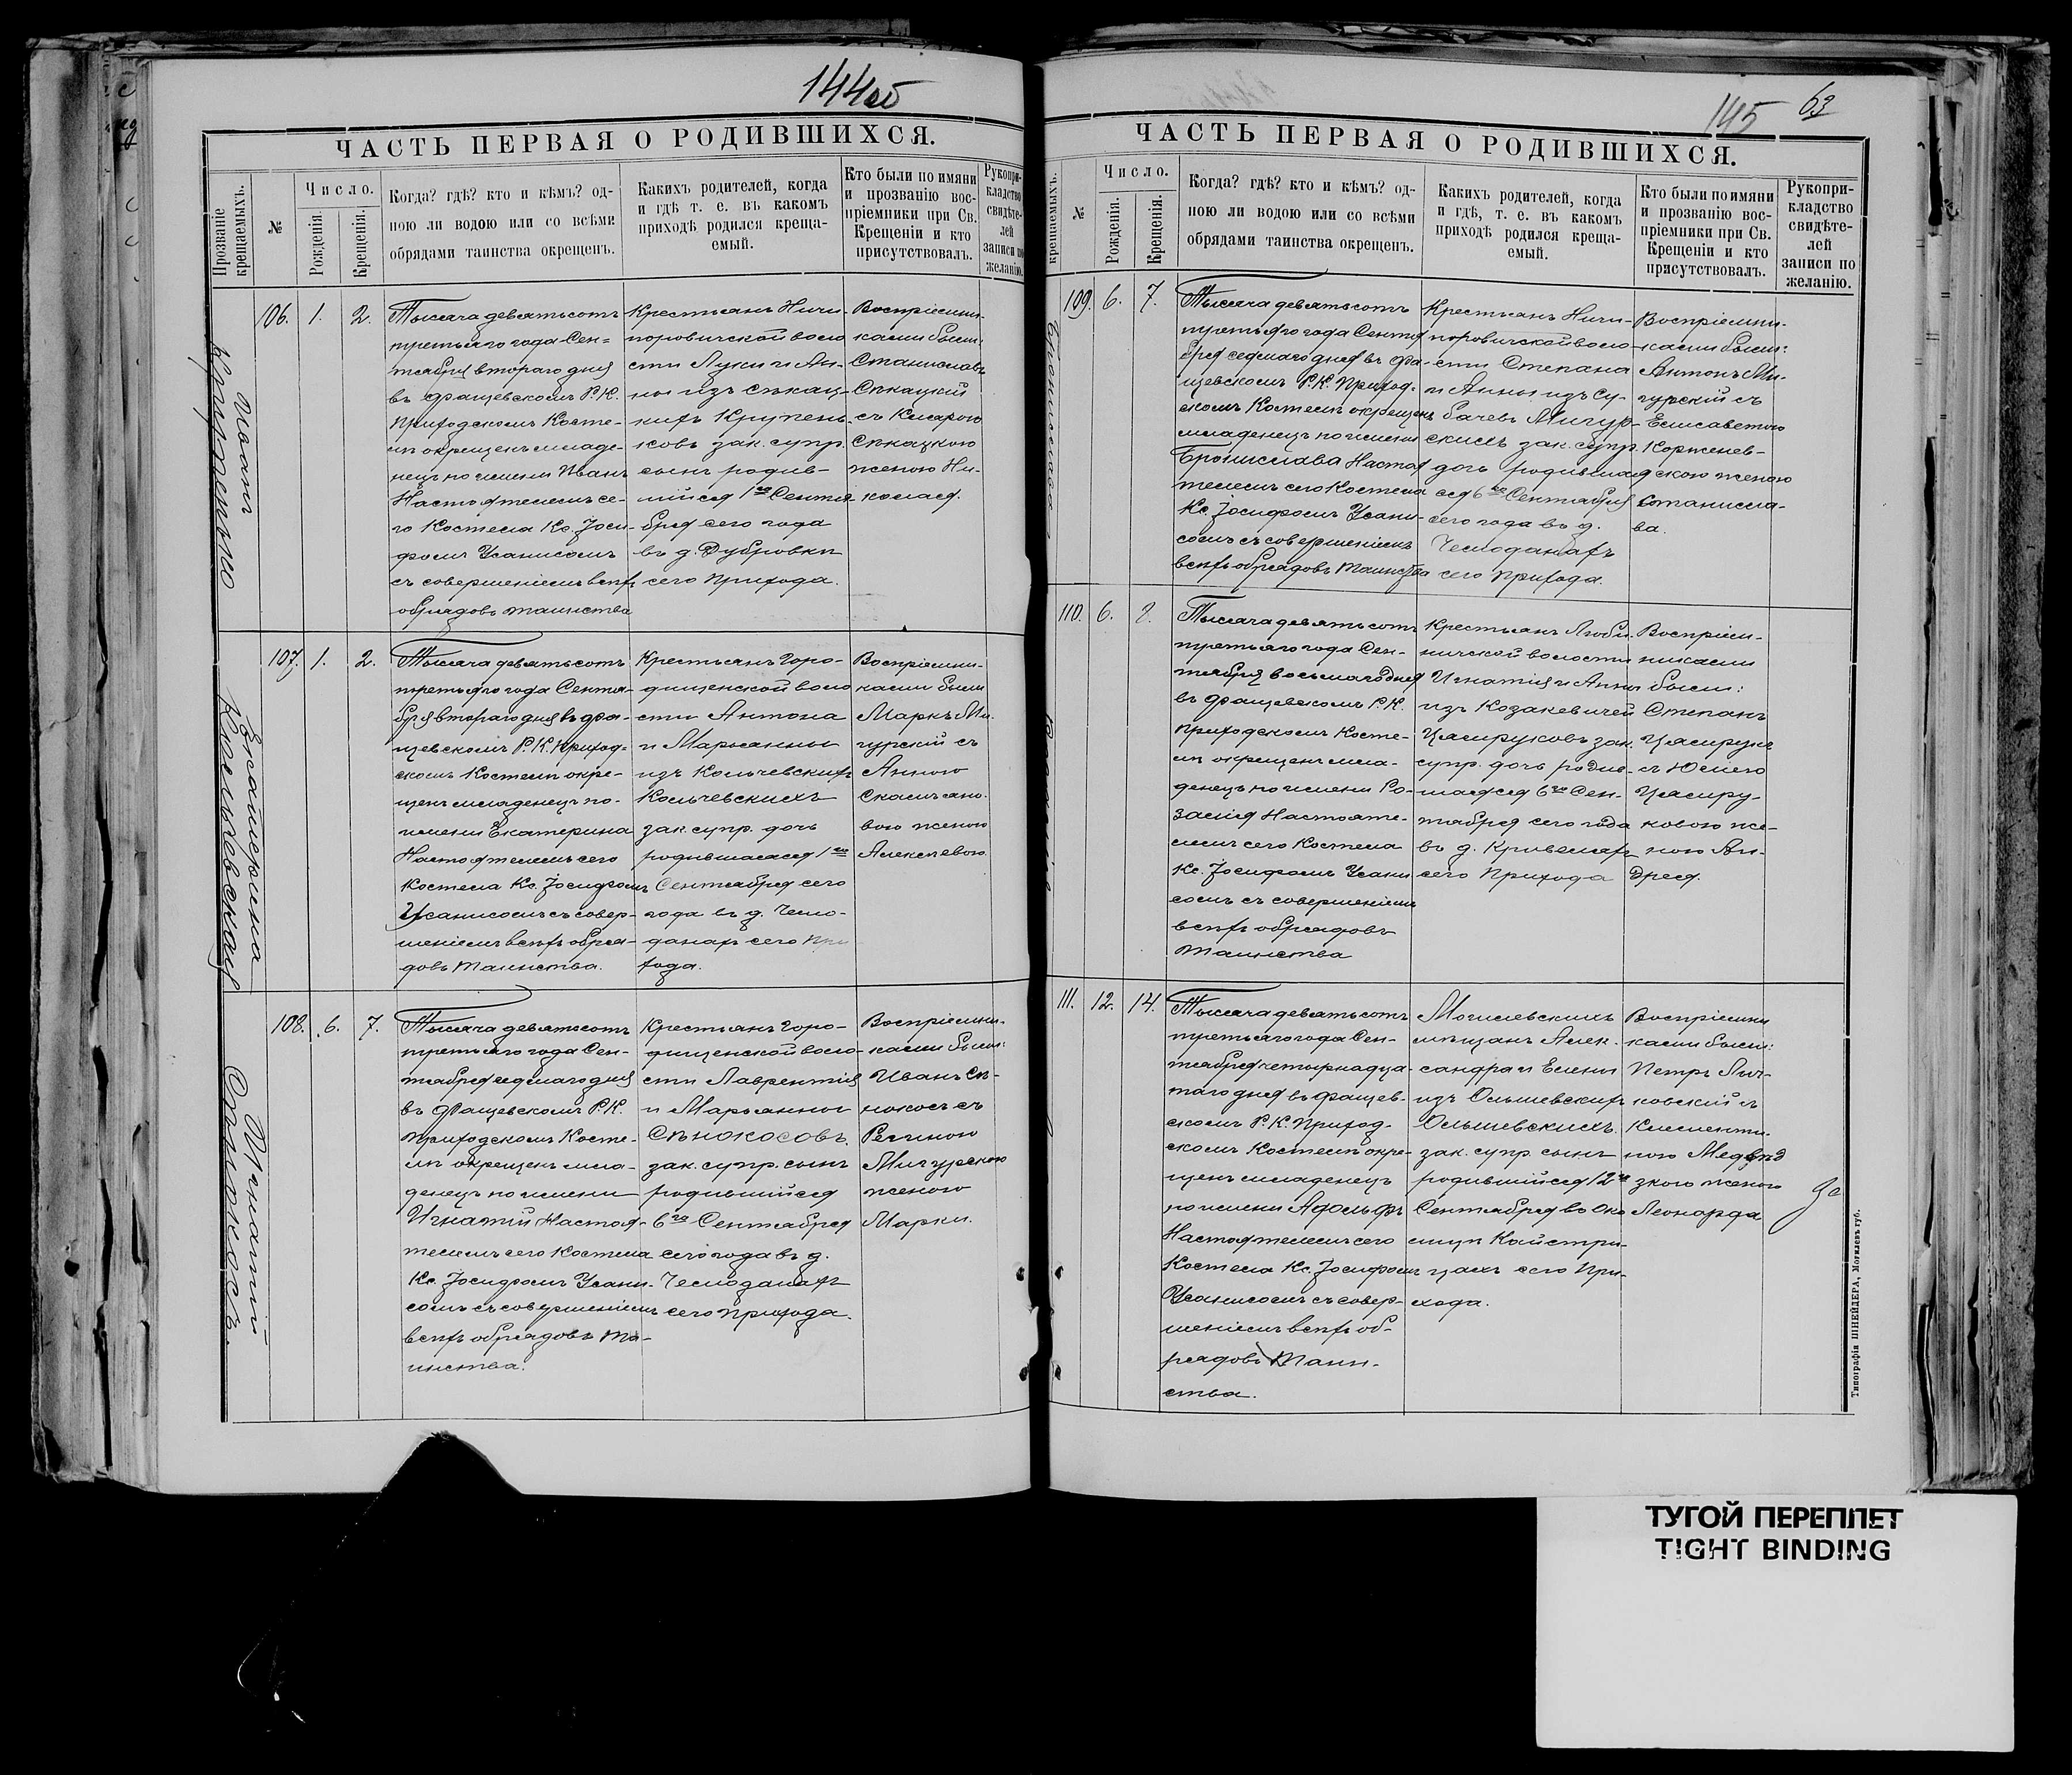 144об
ЧАСТЬ ПЕРВАЯ О РОДИВШИХСЯ.
Прозваніе крещаемыхъ.
№
Число.
Рожденія.
Крещенія.
Когда? гдѣ? кто и кѣмъ? од-
ною ли водою или со всѣми
обрядами таинства окрещенъ.
Какихъ родителей, когда
и гдѣ т. е. въ какомъ
приходѣ родился креща-
емый.
Кто были по имяни
и прозванію вос-
пріемники при Св.
Крещеніи и кто
присутствовалъ.
Рукопри-
кладство
свидѣте-
лей
записи по
желанію.
Иоаннъ
106. 1. 2.
Тысяча девятьсотъ
третьяго года Сен=
тября втораго дня
въ Фащевскомъ Р.К.
Приходскомъ Косте-
лѣ окрещенъ младе-
нецъ по имени Иванъ
Настоятелемъ се-
го Костела Кс. Іоси-
фомъ Усанисомъ
съ совершеніемъ всѣхъ
обрядовъ таинства
Крестьянъ Ничи-
поровичской воло
сти Луки и Ан-
ны изъ Сѣкац-
кихъ Крупень-
ковъ зак. супр.
сынъ родив-
шійся 1го Сентя
бря сего года
въ д. Дубровки
сего Прихода.
Воспріемни-
ками были:
Станиславъ
Сѣкацкій
съ Кларою
Сѣкацкою
женою Ни-
колая.
Екатерина
Кольчевская
107. 1. 2.
Тысяча девятьсотъ
третьяго года Сентя-
бря втораго дня въ Фа-
щевскомъ Р.К. Приход-
скомъ Костелѣ окре-
щенъ младенецъ по-
имени Екатерина
Настоятелемъ сего
Костела Кс. Іосифомъ
Усанисомъ съ совер-
шеніемъ всѣхъ обря-
довъ Таинства.
Крестьянъ Горо-
дищенской воло
сти Антона
и Марьянны
изъ Кольчевскихъ
Кольчевскихъ
зак. супр. дочь
родившаяся 1го
Сентября сего
года въ д. Чемо-
данахъ сего При
хода.
Воспріемни-
ками были
Маркъ Ми-
гурскій съ
Анною
вою женою
Алексѣевою.
Игнатій
Сѣнокосъ.
108. 6. 7.
Тысяча девятьсотъ
третьяго года Сен-
тября седьмаго дня
въ Фащевскомъ Р.К.
Приходскомъ Косте-
лѣ окрещенъ мла-
денецъ по имени
Игнатій Настоя-
телемъ сего Костела
Кс. Іосифомъ Усани-
сомъ съ совершеніемъ
всѣхъ обрядовъ Та-
инства.
Крестьянъ Горо-
дищенской воло-
сти Лаврентія
и Марьянны
Сѣнокосовъ.
зак. супр. сынъ
родившійся
6го Сентября
сего года въ д.
Чемоданахъ
сего Прихода.
Воспріемни-
ками были:
Иванъ Сѣ-
нокосъ съ
Региною
Мигурскою
женою
Марки.
145 63
ЧАСТЬ ПЕРВАЯ О РОДИВШИХСЯ.
крещаемыхъ.
№
Число.
Рожденія.
Крещенія.
Когда? гдѣ? кто и кѣмъ? од-
ною ли водою или со всѣми
обрядами таинства окрещенъ.
Какихъ родителей, когда
и гдѣ, т. е. въ какомъ
приходѣ родился креща-
емый.
Кто были по имяни
и прозванію вос-
пріемники при Св.
Крещеніи и кто
присутствовалъ.
Рукопри-
кладство
свидѣте-
лей
записи по
желанію.
Бронислава
109. 6. 7.
Тысяча девятьсотъ
третьяго года Сентя
бря седьмаго дня въ Фа-
щевскомъ Р.К. Приход-
скомъ Костелѣ окрещенъ
младенецъ по имени
Бронислава Настоя
телемъ сего Костела
Кс. Іосифомъ Усани-
сомъ съ совершеніемъ
всѣхъ обрядовъ Таинства
Крестьянъ Ничи-
поровичской воло-
сти Степана
и Анны изъ Су-
бачевъ Мигур-
скихъ зак. супр.
дочь родившая
ся 6го Сентября
сего года въ д.
Чемоданахъ
сего Прихода.
Воспріемни-
ками были:
Антонъ Ми-
гурскій съ
Елисаветою
Корженев-
скою женою
Станисла-
ва.
110. 6. 8.
Тысяча девятьсотъ
третьяго года Сен-
тября восьмаго дня
въ Фащевскомъ Р.К.
Приходскомъ Косте-
лѣ окрещенъ мла-
денецъ по имени Ро-
залія Настояте-
лемъ сего Костела
Кс. Іосифомъ Усани
сомъ съ совершеніемъ
всѣхъ обрядовъ
Таинства
Крестьянъ Люби-
ничской волости
Игнатія и Анны
изъ Козакевичей
Цамруковъ зак.
супр. дочь родив-
шаяся 6го Сен-
тября сего года
въ д. Кривеляхъ
сего Прихода
Воспріем-
никами
были:
Степанъ
Цамрукъ
съ Юліею
Цамру-
ковою же-
ною Ан-
дрея.
111. 12. 14.
Тысяча девятьсотъ
третьяго года Сен-
тября четырнадца-
таго дня въ Фащев-
скомъ Р.К. Приход-
скомъ Костелѣ окре-
щенъ младенецъ
по имени Адольфъ
Настоятелемъ сего
Костела Кс. Іосифомъ
Усанисомъ съ совер-
шеніемъ всѣхъ об-
рядовъ Таин-
ства.
Могилевскихъ
мѣщанъ Алек-
сандра и Елены
изъ Ольшевскихъ
Ольшевскихъ.
зак. супр. сынъ
родившійся 12го
Сентября въ Око
лицѣ Кайстри-
цахъ сего При-
хода.
Воспріемни
ками были:
Петръ Лич-
ковскій съ
Клементи-
ною Медвѣд
зкою женою
Леонарда
Типографія ШНЕЙДЕРА, Могилевъ губ.
ТУГОЙ ПЕРЕПЛЕТ
TIGHT BINDING